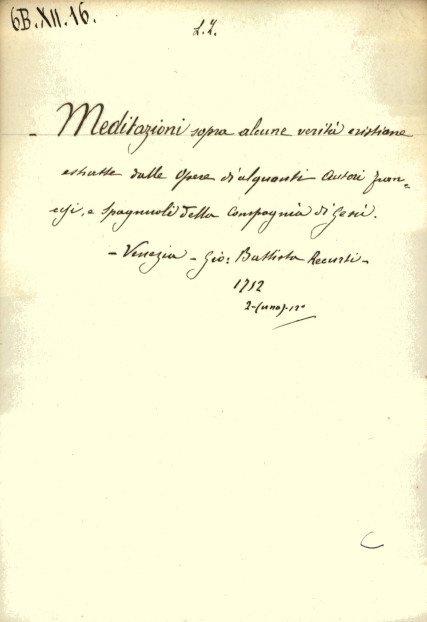 6B.XII.16.
L.Z.
- Meditazioni sopra alcune verità cristiane
estratte dalle Opere d'alquanti Autori fran=
cesi, e spagnuoli della Compagnia di Gesù.
- Venezia - Gio: Battista Recurti -
1712
2-(uno)-12°